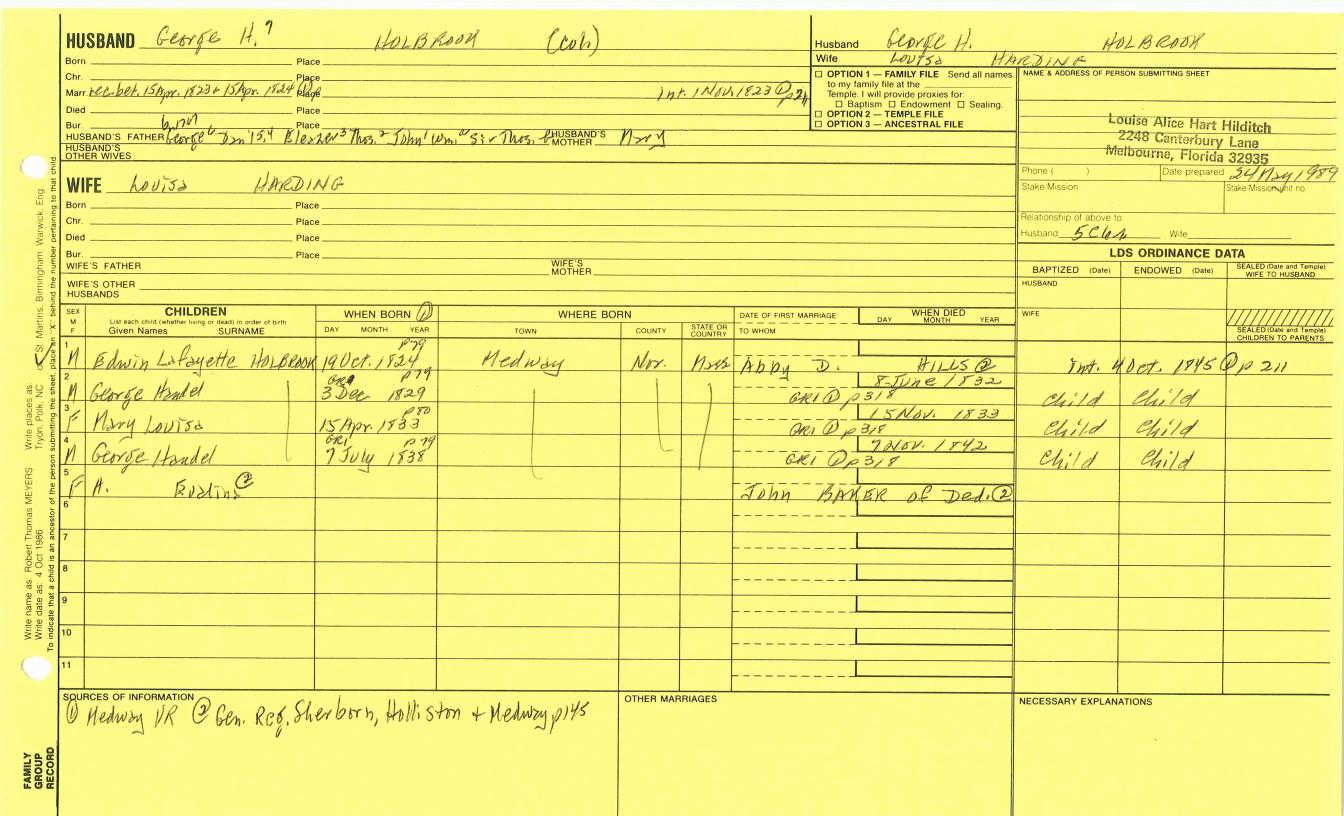 HUSBAND George H.⁷ HOLBROOK (col)
Born Place
Chr. Place
Marr rec. bet. 15 Apr. 1823 & 15 Apr. 1824 ① Place Int. 1 Nov. 1823 ① p211
Died Place
Bur Place
HUSBAND'S FATHER George⁶ Dan'l⁵,⁴ Eleazer³ Thos.² John¹ Wm. Sir Thos. HUSBAND'S MOTHER Mary
HUSBAND'S OTHER WIVES
Husband George H. HOLBROOK
Wife Louisa HARDING
☐ OPTION 1 — FAMILY FILE Send all names
to my family file at the
Temple. I will provide proxies for:
☐ Baptism ☐ Endowment ☐ Sealing.
☐ OPTION 2 — TEMPLE FILE
☐ OPTION 3 — ANCESTRAL FILE
NAME & ADDRESS OF PERSON SUBMITTING SHEET
Louise Alice Hart Hilditch
2248 Canterbury Lane
Melbourne, Florida 32935
Phone ( ) Date prepared 24 May 1989
Stake-Mission Stake-Mission unit no.
Relationship of above to
Husband 5C6R Wife
WIFE Louisa HARDING
Born Place
Chr. Place
Died Place
Bur. Place
WIFE'S FATHER WIFE'S MOTHER
WIFE'S OTHER HUSBANDS
LDS ORDINANCE DATA
BAPTIZED (Date) ENDOWED (Date) SEALED (Date and Temple) WIFE TO HUSBAND
HUSBAND
WIFE
SEALED (Date and Temple) CHILDREN TO PARENTS
SEX M F CHILDREN WHEN BORN ① WHERE BORN DATE OF FIRST MARRIAGE WHEN DIED
List each child (whether living or dead) in order of birth
Given Names SURNAME DAY MONTH YEAR TOWN COUNTY STATE OR COUNTRY TO WHOM DAY MONTH YEAR
p79
1 M Edwin Lafayette HOLBROOK 19 Oct. 1824 Medway Nor. Mass Abby D. HILLS ② Int. 4 Oct. 1845 ① p 211
GR1 p79 8 June 1832
2 M George Handel 3 Dec 1829 GR1 ① p318 Child Child
p80 15 Nov. 1833
3 F Mary Louisa 15 Apr. 1833 GR1 ① p318 Child Child
GR1 p79 7 Nov. 1842
4 M George Handel 7 July 1838 GR1 ① p318 Child Child
5 F A. Evaline ② John BAKER of Ded. ②
6
7
8
9
10
11
SOURCES OF INFORMATION
① Medway VR ② Gen. Reg. Sherborn, Holliston & Medway p145
OTHER MARRIAGES
NECESSARY EXPLANATIONS
Write name as: Robert Thomas MEYERS Write places as: Tryon, Polk, NC or St. Martins, Birmingham, Warwick, Eng.
Write date as: 4 Oct 1986
To indicate that a child is an ancestor of the person submitting the sheet, place an "X" behind the number pertaining to that child.
FAMILY GROUP RECORD